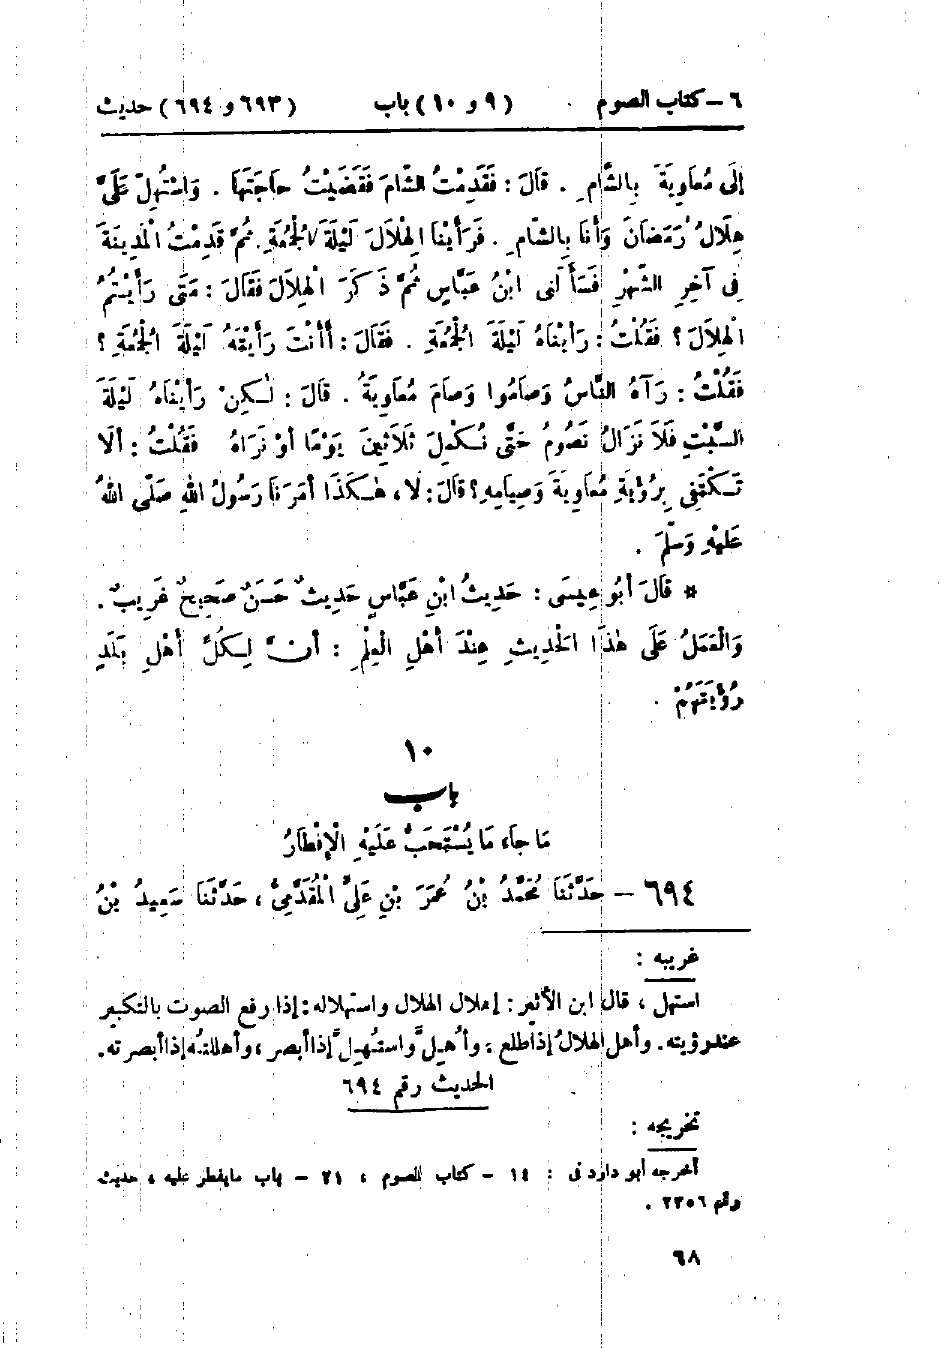 ٦ - كتاب الصوم (٩ و ١٠) باب (٦٩٣ و ٦٩٤) حديث
إِلَى مُعَاوِيَةَ بِالشَّامِ . قَالَ : فَقَدِمْتُ الشَّامَ فَقَضَيْتُ حَاجَتَهَا . وَاسْتُهِلَّ عَلَيَّ
هِلَالُ رَمَضَانَ وَأَنَا بِالشَّامِ . فَرَأَيْنَا الْهِلَالَ لَيْلَةَ الْجُمُعَةِ . ثُمَّ قَدِمْتُ الْمَدِينَةَ
فِي آخِرِ الشَّهْرِ فَسَأَلَنِي ابْنُ عَبَّاسٍ ثُمَّ ذَكَرَ الْهِلَالَ فَقَالَ : مَتَى رَأَيْتُمُ
الْهِلَالَ ؟ فَقُلْتُ : رَأَيْنَاهُ لَيْلَةَ الْجُمُعَةِ . فَقَالَ : أَأَنْتَ رَأَيْتَهُ لَيْلَةَ الْجُمُعَةِ ؟
فَقُلْتُ : رَآهُ النَّاسُ وَصَامُوا وَصَامَ مُعَاوِيَةُ . قَالَ : لٰكِنْ رَأَيْنَاهُ لَيْلَةَ
السَّبْتِ فَلَا نَزَالُ نَصُومُ حَتَّى نُكْمِلَ ثَلَاثِينَ يَوْمًا أَوْ نَرَاهُ فَقُلْتُ : أَلَا
تَكْتَفِي بِرُؤْيَةِ مُعَاوِيَةَ وَصِيَامِهِ ؟ قَالَ : لَا ، هٰكَذَا أَمَرَنَا رَسُولُ اللهِ صَلَّى اللهُ
عَلَيْهِ وَسَلَّمَ .
* قَالَ أَبُو عِيسَى : حَدِيثُ ابْنِ عَبَّاسٍ حَدِيثٌ حَسَنٌ صَحِيحٌ غَرِيبٌ .
وَالْعَمَلُ عَلَى هٰذَا الْحَدِيثِ عِنْدَ أَهْلِ الْعِلْمِ : أَنَّ لِكُلِّ أَهْلِ بَلَدٍ
رُؤْيَتَهُمْ .
١٠
باب
مَا جَاءَ مَا يُسْتَحَبُّ عَلَيْهِ الْإِفْطَارُ
٦٩٤ - حَدَّثَنَا مُحَمَّدُ بْنُ عُمَرَ بْنِ عَلِيٍّ الْمُقَدَّمِيُّ ، حَدَّثَنَا سَعِيدُ بْنُ
غريبه :
استهل ، قال ابن الأثير : إهلال الهلال واستهلاله : إذا رفع الصوت بالتكبير
عند رؤيته . وأهل الهلالُ إذا طلع ؛ وأُهِلَّ واستُهِلَّ إذا أبصر ، وأهللتُه إذا أبصرته .
الحديث رقم ٦٩٤
تخريجه :
أخرجه أبو داود فى : ١٤ - كتاب الصوم ، ٢١ - باب ما يفطر عليه ، حديث
رقم ٢٣٥٦ .
٦٨